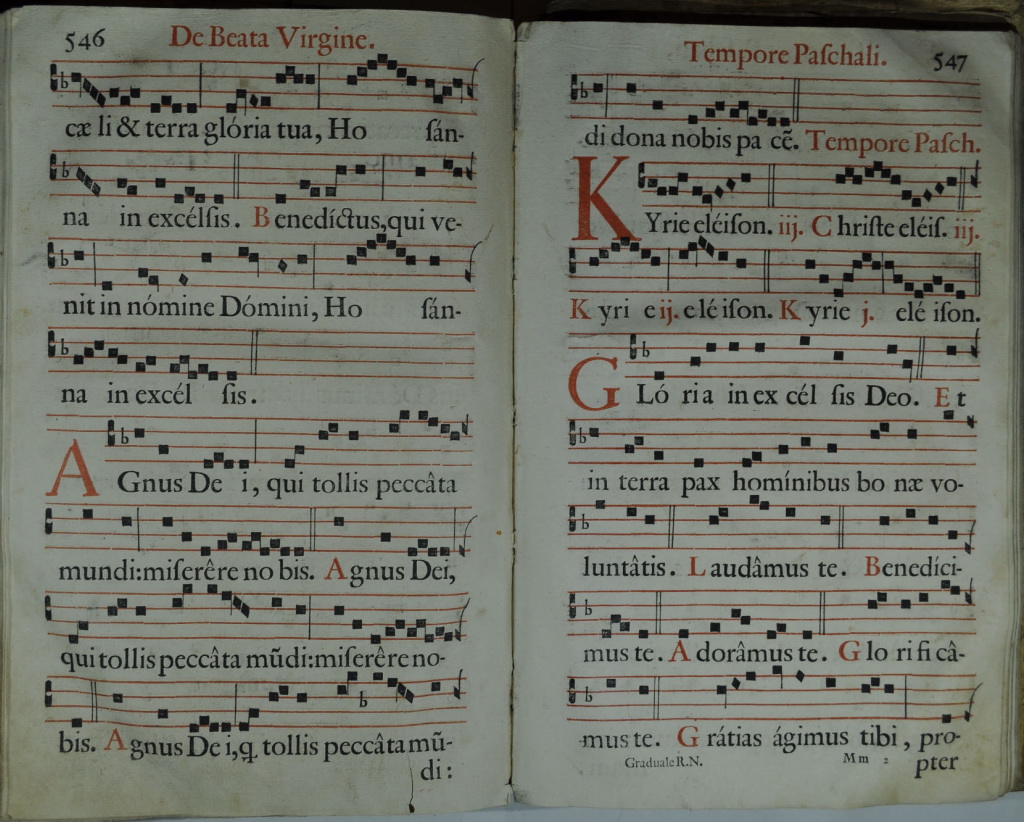 546
De Beata Virgine.
cæ li & terra glória tua, Ho ſán-
na in excélſis. Benedíctus, qui ve-
nit in nómine Dómini, Ho ſán-
na in excél ſis.
AGnus De i, qui tollis peccâta
mundi: miſerêre no bis. Agnus Dei,
qui tollis peccâta mũdi: miſerêre no-
bis. Agnus De i, q tollis peccâta mũ-
di:
Tempore Paſchali. 547
di dona nobis pa cẽ. Tempore Paſch.
KYrie eléiſon. iij. Chriſte eléiſ. iij.
Kyri e ij. elé iſon. Kyrie j. elé iſon.
GLó ri a in ex cél ſis Deo. Et
in terra pax homínibus bo næ vo-
luntâtis. Laudâmus te. Benedíci-
mus te. Adorâmus te. Glo ri fi câ-
mus te. Grátias ágimus tibi, pro-
Graduale R.N. Mm 2 pter